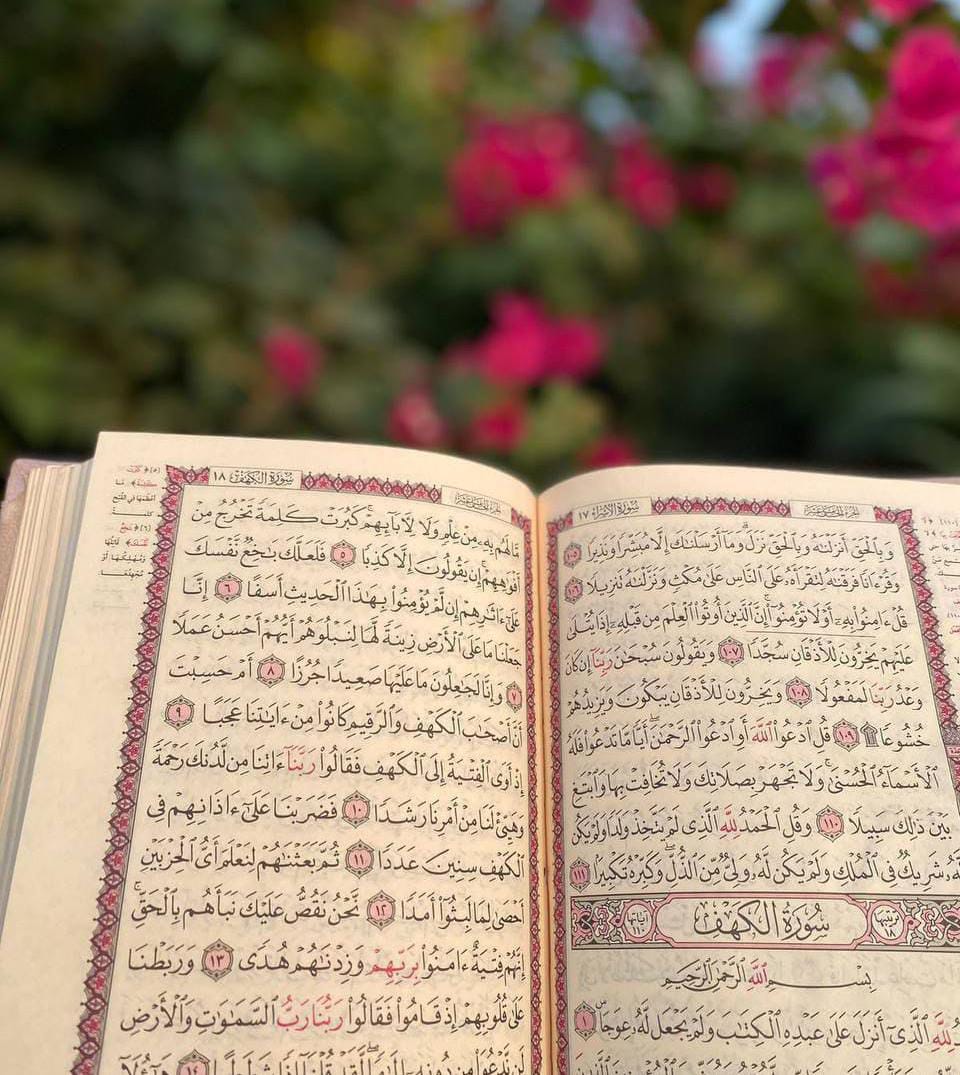 سُورَةُ الإِسْرَاءِ ١٧
وَبِٱلْحَقِّ أَنزَلْنَٰهُ وَبِٱلْحَقِّ نَزَلَ ۗ وَمَآ أَرْسَلْنَٰكَ إِلَّا مُبَشِّرًا وَنَذِيرًا ١٠٥
وَقُرْءَانًا فَرَقْنَٰهُ لِتَقْرَأَهُۥ عَلَى ٱلنَّاسِ عَلَىٰ مُكْثٍ وَنَزَّلْنَٰهُ تَنزِيلًا ١٠٦
قُلْ ءَامِنُوا۟ بِهِۦٓ أَوْ لَا تُؤْمِنُوٓا۟ ۚ إِنَّ ٱلَّذِينَ أُوتُوا۟ ٱلْعِلْمَ مِن قَبْلِهِۦٓ إِذَا يُتْلَىٰ
عَلَيْهِمْ يَخِرُّونَ لِلْأَذْقَانِ سُجَّدًا ١٠٧ وَيَقُولُونَ سُبْحَٰنَ رَبِّنَآ إِن كَانَ
وَعْدُ رَبِّنَا لَمَفْعُولًا ١٠٨ وَيَخِرُّونَ لِلْأَذْقَانِ يَبْكُونَ وَيَزِيدُهُمْ
خُشُوعًا ۩ ١٠٩ قُلِ ٱدْعُوا۟ ٱللَّهَ أَوِ ٱدْعُوا۟ ٱلرَّحْمَٰنَ ۖ أَيًّا مَّا تَدْعُوا۟ فَلَهُ
ٱلْأَسْمَآءُ ٱلْحُسْنَىٰ ۚ وَلَا تَجْهَرْ بِصَلَاتِكَ وَلَا تُخَافِتْ بِهَا وَٱبْتَغِ
بَيْنَ ذَٰلِكَ سَبِيلًا ١١٠ وَقُلِ ٱلْحَمْدُ لِلَّهِ ٱلَّذِى لَمْ يَتَّخِذْ وَلَدًا وَلَمْ يَكُن
لَّهُۥ شَرِيكٌ فِى ٱلْمُلْكِ وَلَمْ يَكُن لَّهُۥ وَلِىٌّ مِّنَ ٱلذُّلِّ ۖ وَكَبِّرْهُ تَكْبِيرًا ١١١
سُورَةُ الكَهْفِ
بِسْمِ ٱللَّهِ ٱلرَّحْمَٰنِ ٱلرَّحِيمِ
لِلَّهِ ٱلَّذِىٓ أَنزَلَ عَلَىٰ عَبْدِهِ ٱلْكِتَٰبَ وَلَمْ يَجْعَل لَّهُۥ عِوَجًا ۜ ١
سُورَةُ الكَهْفِ ١٨
مَّا لَهُم بِهِۦ مِنْ عِلْمٍ وَلَا لِءَابَآئِهِمْ ۚ كَبُرَتْ كَلِمَةً تَخْرُجُ مِنْ
أَفْوَٰهِهِمْ ۚ إِن يَقُولُونَ إِلَّا كَذِبًا ٥ فَلَعَلَّكَ بَٰخِعٌ نَّفْسَكَ
عَلَىٰٓ ءَاثَٰرِهِمْ إِن لَّمْ يُؤْمِنُوا۟ بِهَٰذَا ٱلْحَدِيثِ أَسَفًا ٦ إِنَّا
جَعَلْنَا مَا عَلَى ٱلْأَرْضِ زِينَةً لَّهَا لِنَبْلُوَهُمْ أَيُّهُمْ أَحْسَنُ عَمَلًا
٧ وَإِنَّا لَجَٰعِلُونَ مَا عَلَيْهَا صَعِيدًا جُرُزًا ٨ أَمْ حَسِبْتَ
أَنَّ أَصْحَٰبَ ٱلْكَهْفِ وَٱلرَّقِيمِ كَانُوا۟ مِنْ ءَايَٰتِنَا عَجَبًا ٩
إِذْ أَوَى ٱلْفِتْيَةُ إِلَى ٱلْكَهْفِ فَقَالُوا۟ رَبَّنَآ ءَاتِنَا مِن لَّدُنكَ رَحْمَةً
وَهَيِّئْ لَنَا مِنْ أَمْرِنَا رَشَدًا ١٠ فَضَرَبْنَا عَلَىٰٓ ءَاذَانِهِمْ فِى
ٱلْكَهْفِ سِنِينَ عَدَدًا ١١ ثُمَّ بَعَثْنَٰهُمْ لِنَعْلَمَ أَىُّ ٱلْحِزْبَيْنِ
أَحْصَىٰ لِمَا لَبِثُوٓا۟ أَمَدًا ١٢ نَّحْنُ نَقُصُّ عَلَيْكَ نَبَأَهُم بِٱلْحَقِّ ۚ
إِنَّهُمْ فِتْيَةٌ ءَامَنُوا۟ بِرَبِّهِمْ وَزِدْنَٰهُمْ هُدًى ١٣ وَرَبَطْنَا
عَلَىٰ قُلُوبِهِمْ إِذْ قَامُوا۟ فَقَالُوا۟ رَبُّنَا رَبُّ ٱلسَّمَٰوَٰتِ وَٱلْأَرْضِ